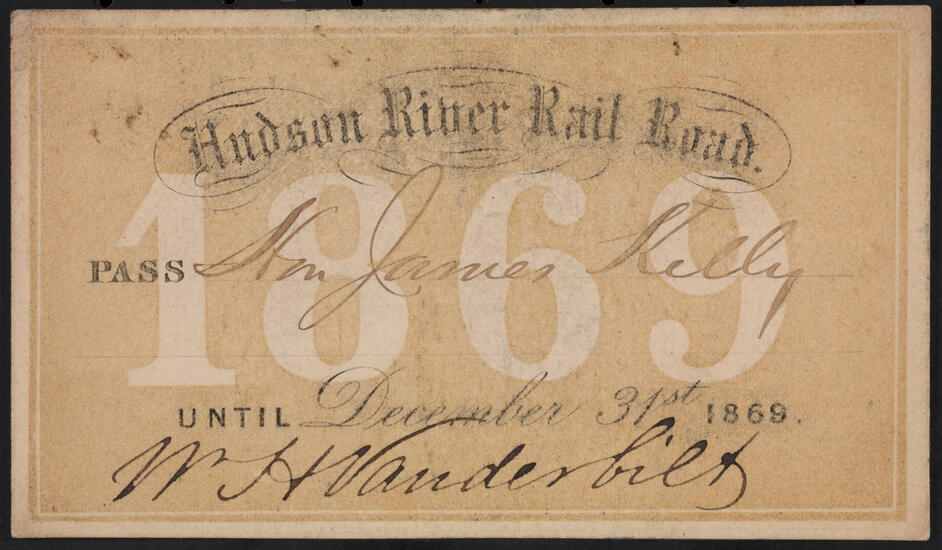 Hudson River Rail Road.
1869
PASS Hon James Kelly
UNTIL December 31st 1869.
Wm H Vanderbilt